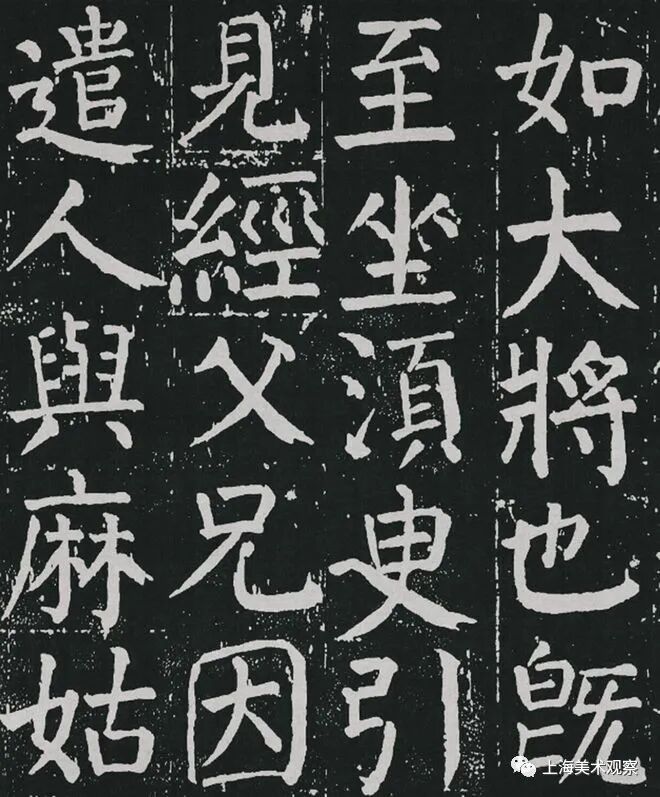 如大將也既
至坐須臾引
見經父兄因
遣人與麻姑
上海美术观察